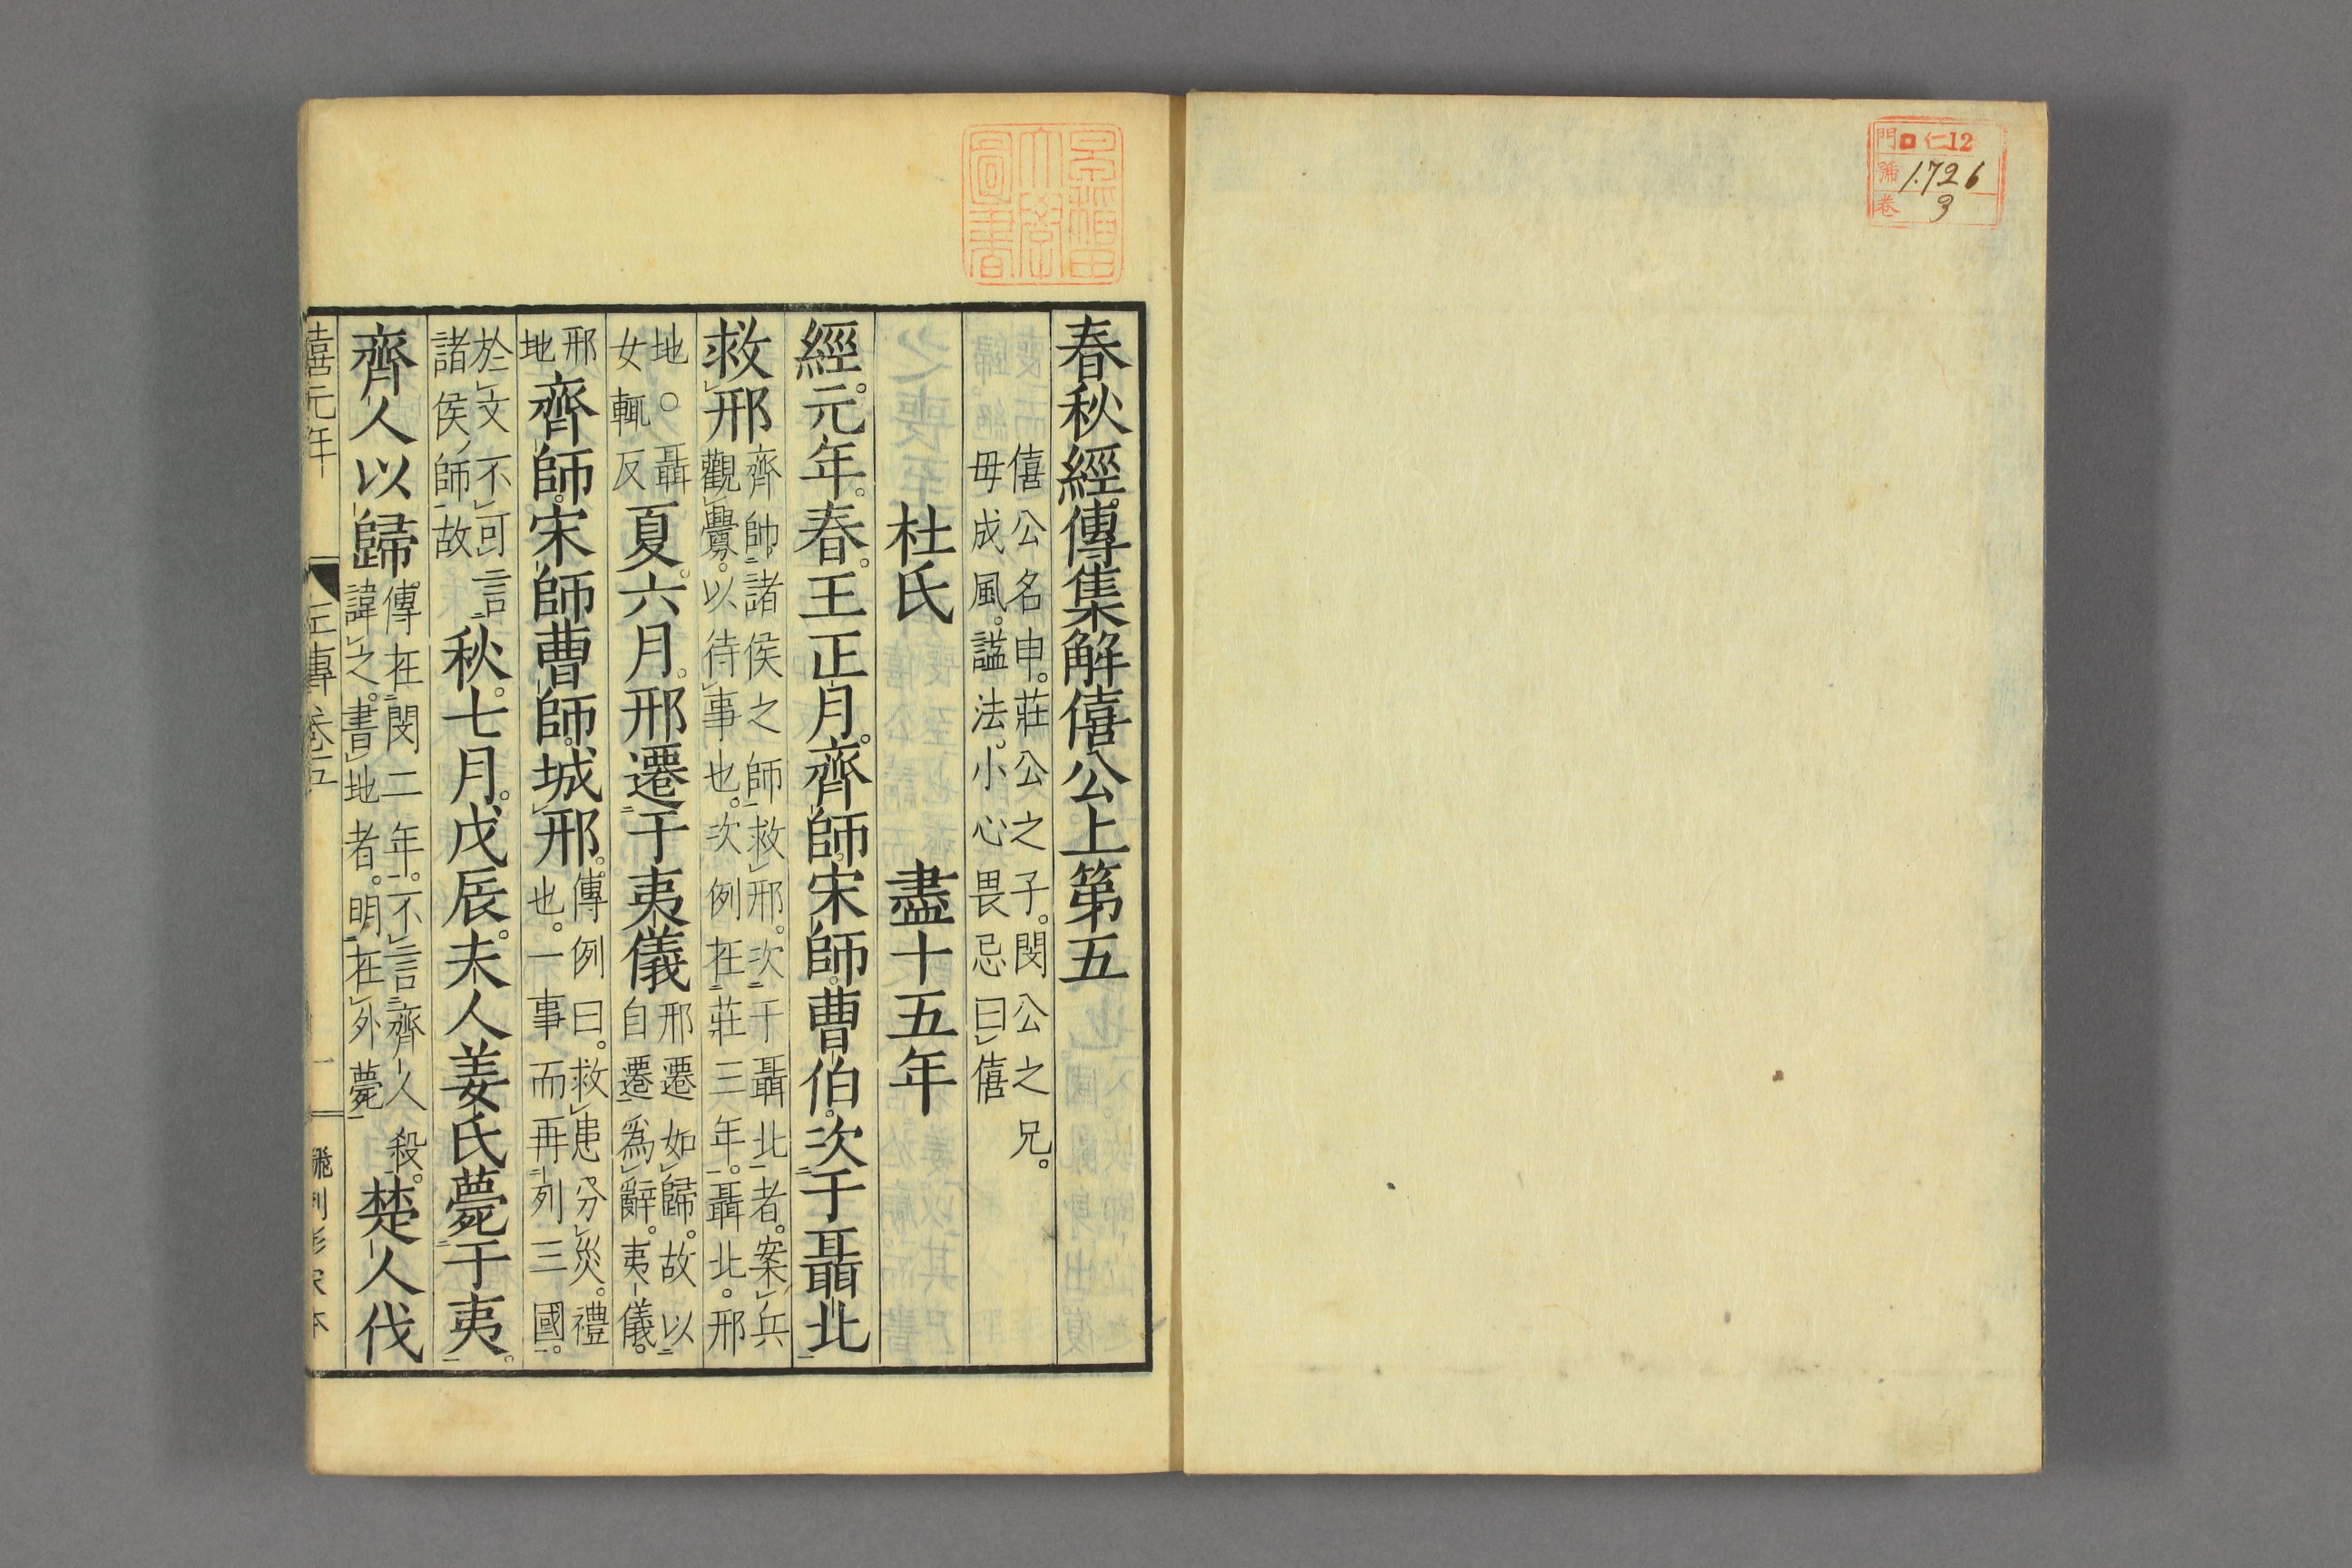 門 ロ 仁12
號 1726
卷 3
早稲田
大學
圖書
春秋經傳集解僖公上第五
僖公名申。莊公之子。閔公之兄。
毋成風。謚法。小心畏忌曰僖
杜氏 盡十五年
經。元年。春。王正月。齊師。宋師。曹伯。次于聶北
救邢
齊帥諸侯之師救邢。次于聶北者。案兵
觀釁。以待事也。次例在莊三年。聶北。邢
地。○聶
女輒反
夏。六月。邢遷于夷儀
邢遷如歸。故以
自遷爲辭。夷儀。
邢
地
齊師。宋師曹師。城邢。
傳例曰。救患分災。禮
也。一事而再列三國。
於文不可言
諸侯師故
秋。七月。戊辰。夫人姜氏薨于夷。
齊人以歸
傳在閔二年。不言齊人殺。
諱之。書地者。明在外薨
楚人伐
僖元年
左傳卷五
一